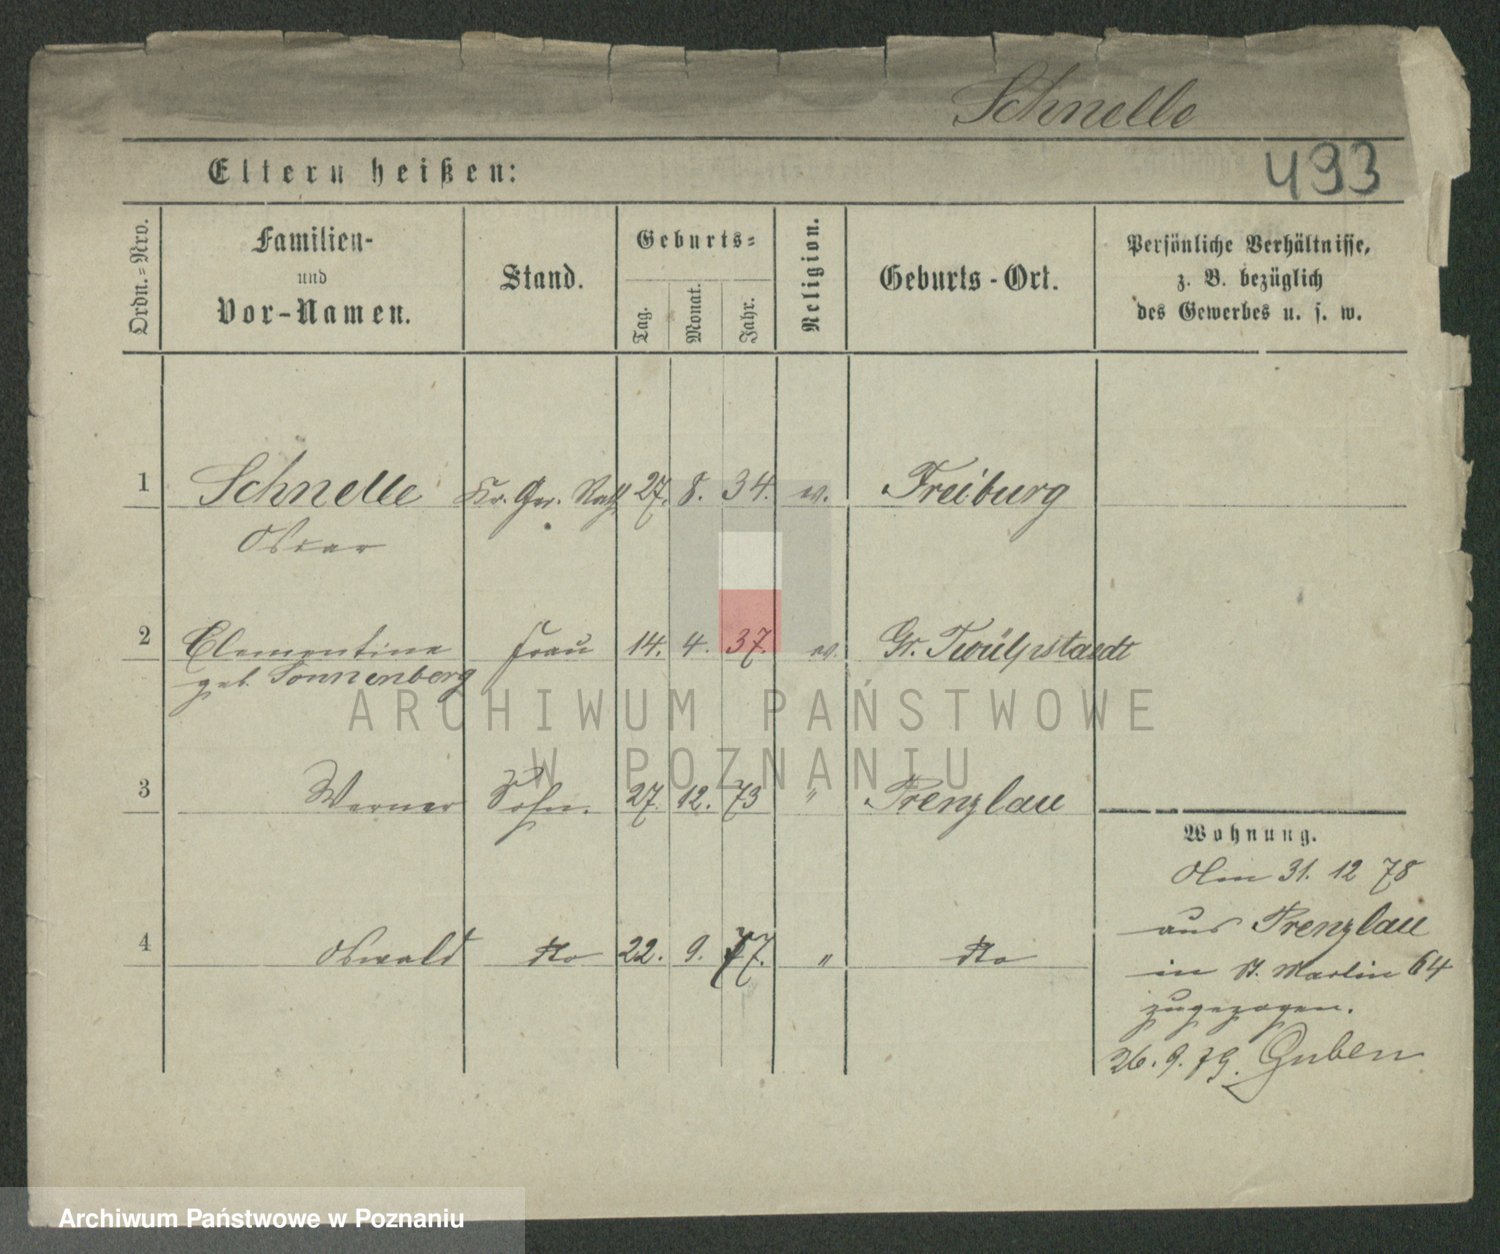 Schnelle
493
Eltern heißen:
Ordn.=Nro.
Familien-
und
Vor-Namen.
Stand.
Geburts=
Tag.
Monat.
Jahr.
Religion.
Geburts-Ort.
Persönliche Verhältnisse,
z. B. bezüglich
des Gewerbes u. s. w.
1 Schnelle Kr. Ger. Rath 27. 8. 34. ev. Freiburg
Oscar
2 Clementine Frau 14. 4. 37. ev. Gr. Twülpstaedt
geb. Sonnenberg
3 Werner Sohn. 27. 12. 73 " Prenzlau
4 Oswald dto 22. 9. 77. " dto
Wohnung.
Am 31. 12 78
aus Prenzlau
in St. Martin 64
zugezogen.
26. 9. 79. Guben
ARCHIWUM PAŃSTWOWE
W POZNANIU
Archiwum Państwowe w Poznaniu